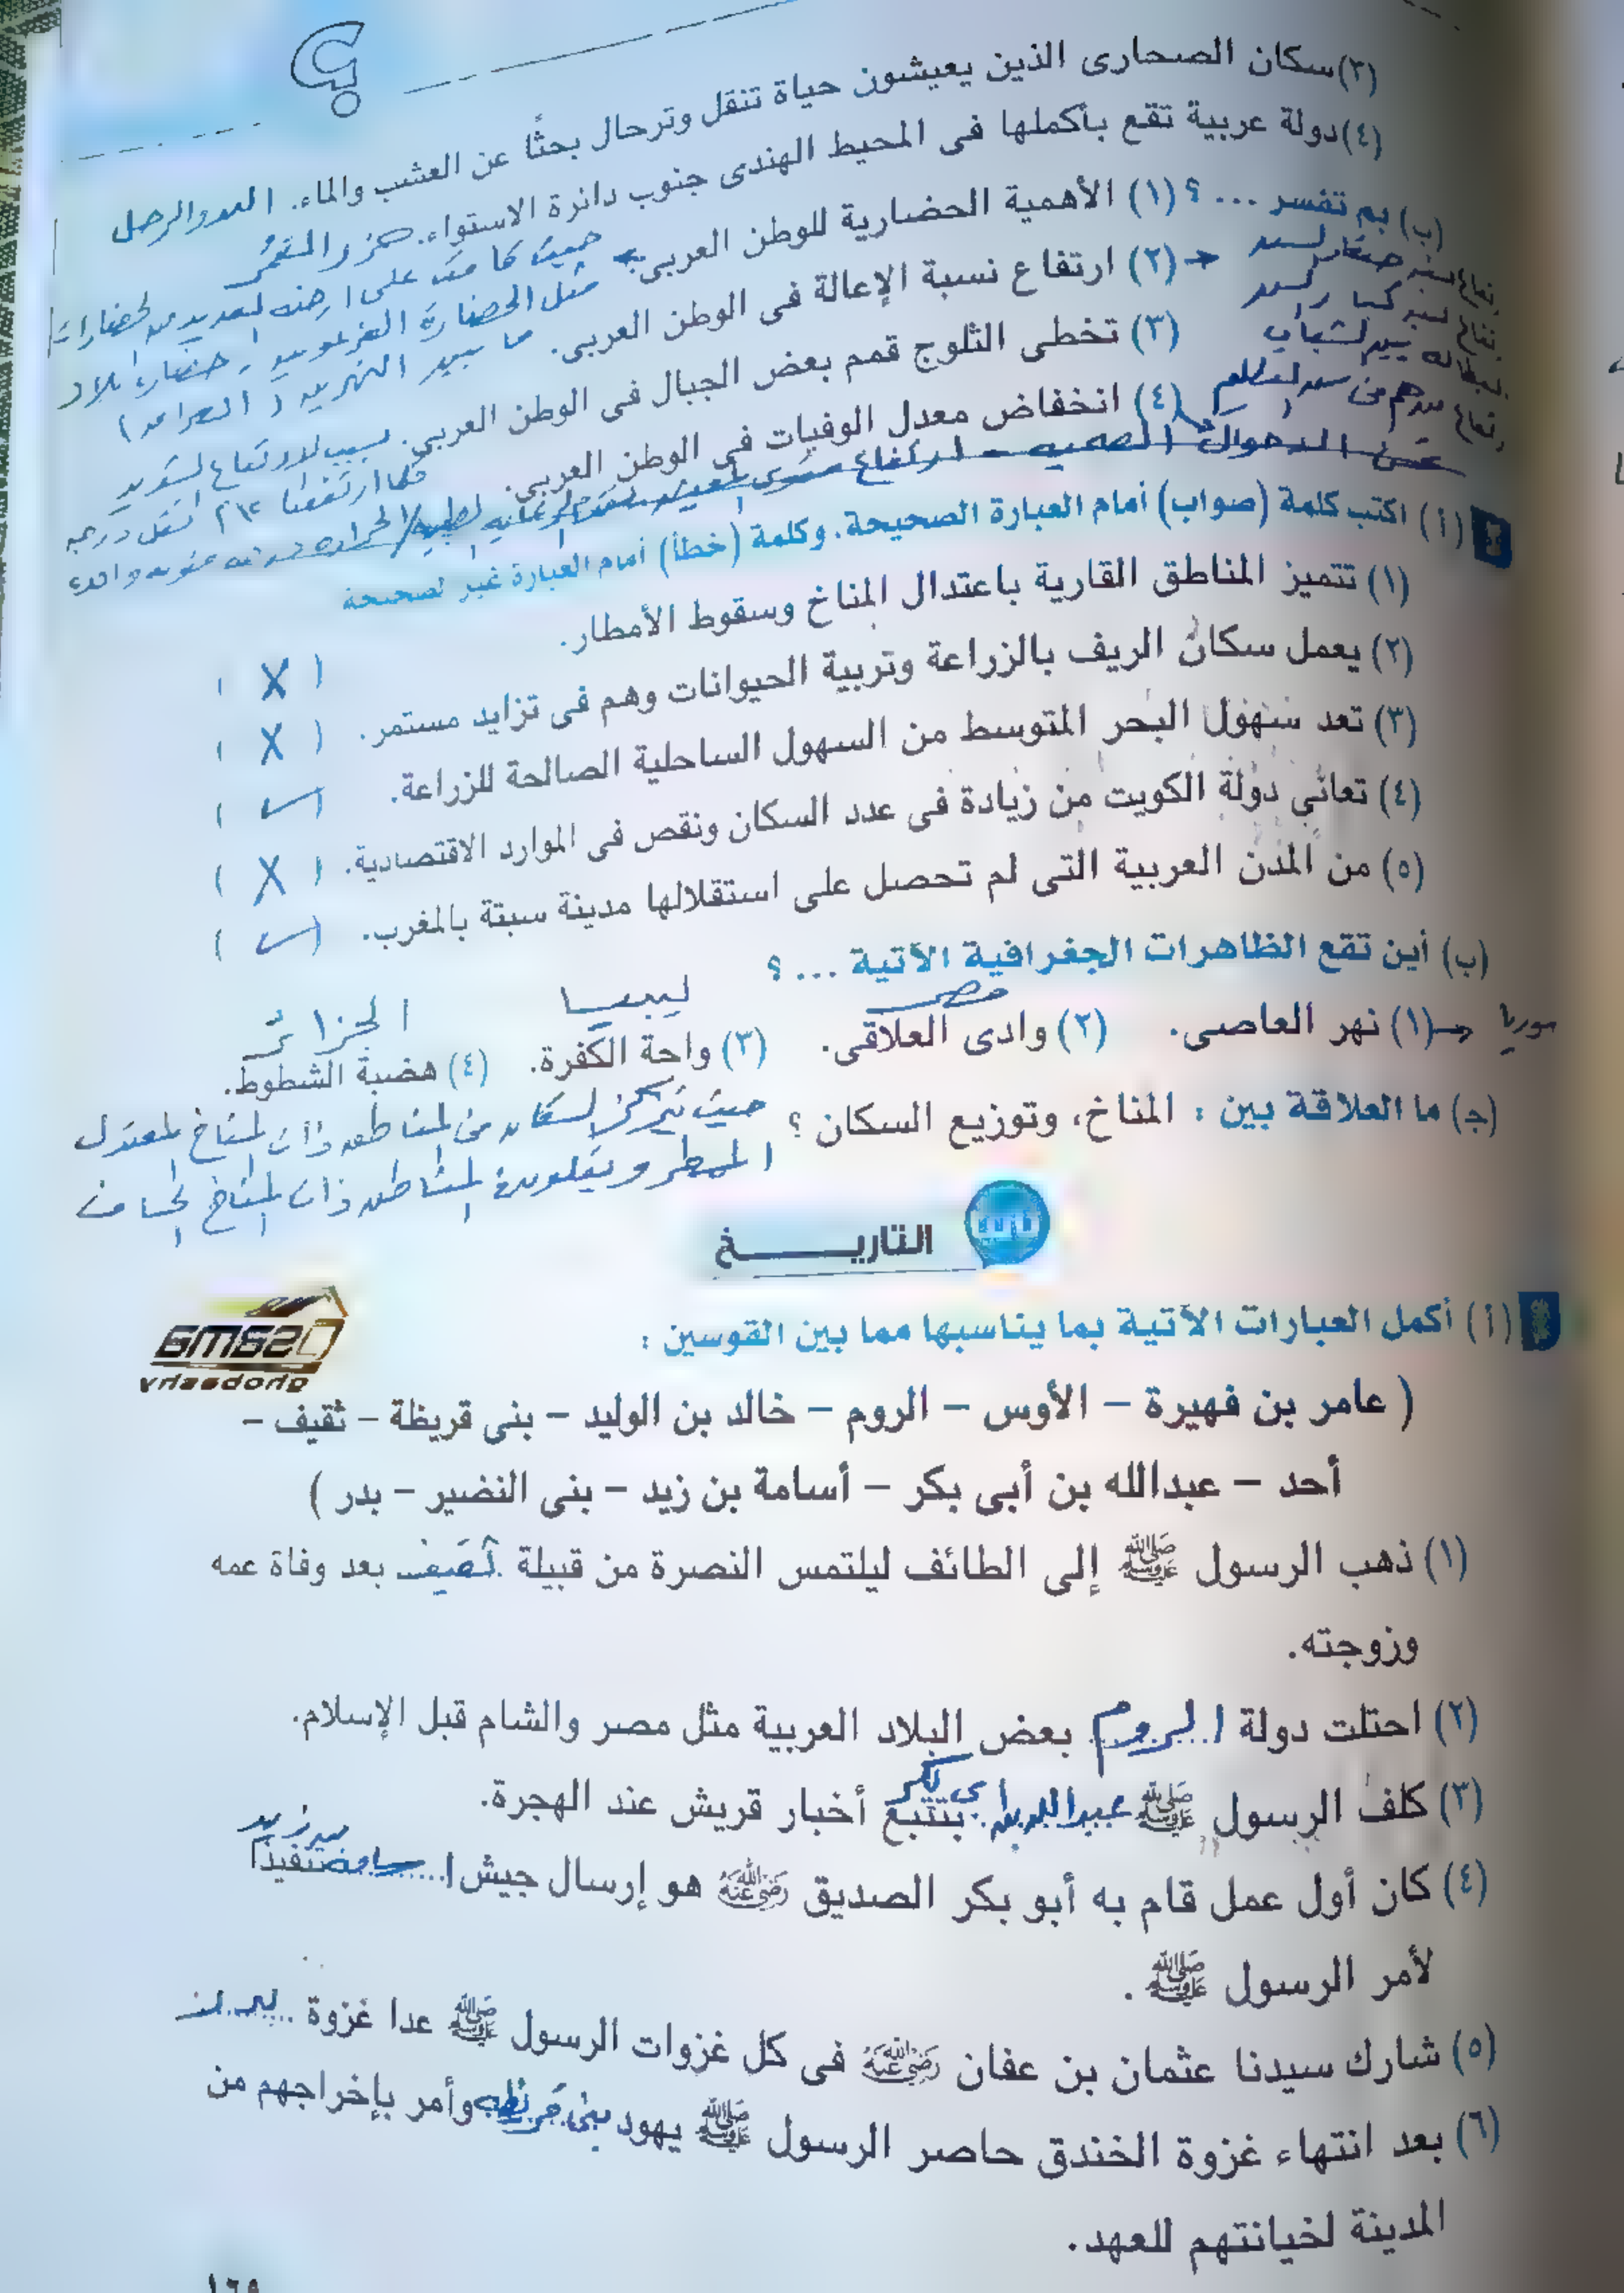 (٣) سكان الصحارى الذين يعيشون حياة تنقل وترحال بحثًا عن العشب والماء. البدو الرحل
(٤) دولة عربية تقع بأكملها فى المحيط الهندى جنوب دائرة الاستواء. جزر القمر
(ب) بم تفسر ... ؟ (١) الأهمية الحضارية للوطن العربى.
حيث قامت على ارضه العديد من الحضارات
مثل الحضارة الفرعونية و حضارة بلاد
ما بين النهرين ( العراق )
(٢) ارتفاع نسبة الإعالة فى الوطن العربى.
(٣) تخطى الثلوج قمم بعض الجبال فى الوطن العربى. بسبب الارتفاع الشديد
(٤) انخفاض معدل الوفيات فى الوطن العربى.
(أ) اكتب كلمة (صواب) أمام العبارة الصحيحة، وكلمة (خطأ) أمام العبارة غير الصحيحة
(١) تتميز المناطق القارية باعتدال المناخ وسقوط الأمطار. ( X )
(٢) يعمل سكان الريف بالزراعة وتربية الحيوانات وهم فى تزايد مستمر. ( X )
(٣) تعد سهول البحر المتوسط من السهول الساحلية الصالحة للزراعة. ( ✓ )
(٤) تعانى دولة الكويت من زيادة فى عدد السكان ونقص فى الموارد الاقتصادية. ( X )
(٥) من المدن العربية التى لم تحصل على استقلالها مدينة سبتة بالمغرب. ( ✓ )
(ب) أين تقع الظاهرات الجغرافية الآتية ... ؟
سوريا مصر ليبيا الجزائر
(١) نهر العاصى. (٢) وادى العلاقى. (٣) واحة الكفرة. (٤) هضبة الشطوط.
(جـ) ما العلاقة بين : المناخ، وتوزيع السكان ؟ حيث يتركز السكان فى المناطق ذات المناخ المعتدل
الممطر و يقلون فى المناطق ذات المناخ الجاف
التاريـــــــخ
(أ) أكمل العبارات الآتية بما يناسبها مما بين القوسين :
( عامر بن فهيرة – الأوس – الروم – خالد بن الوليد – بنى قريظة – ثقيف –
أحد – عبدالله بن أبى بكر – أسامة بن زيد – بنى النضير – بدر )
(١) ذهب الرسول ﷺ إلى الطائف ليلتمس النصرة من قبيلة ثقيف بعد وفاة عمه
وزوجته.
(٢) احتلت دولة الروم بعض البلاد العربية مثل مصر والشام قبل الإسلام.
(٣) كلف الرسول ﷺ عبدالله بن أبى بكر بتتبع أخبار قريش عند الهجرة.
(٤) كان أول عمل قام به أبو بكر الصديق رضي الله عنه هو إرسال جيش اسامة بن زيد تنفيذًا
لأمر الرسول ﷺ .
(٥) شارك سيدنا عثمان بن عفان رضي الله عنه فى كل غزوات الرسول ﷺ عدا غزوة بدر
(٦) بعد انتهاء غزوة الخندق حاصر الرسول ﷺ يهود بنى قريظة وأمر بإخراجهم من
المدينة لخيانتهم للعهد.
١٦٩